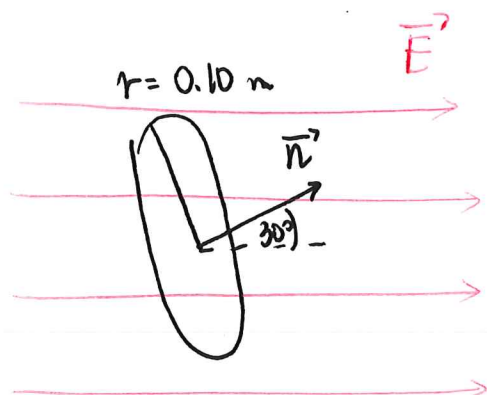 E
r = 0.10 m
n
30°